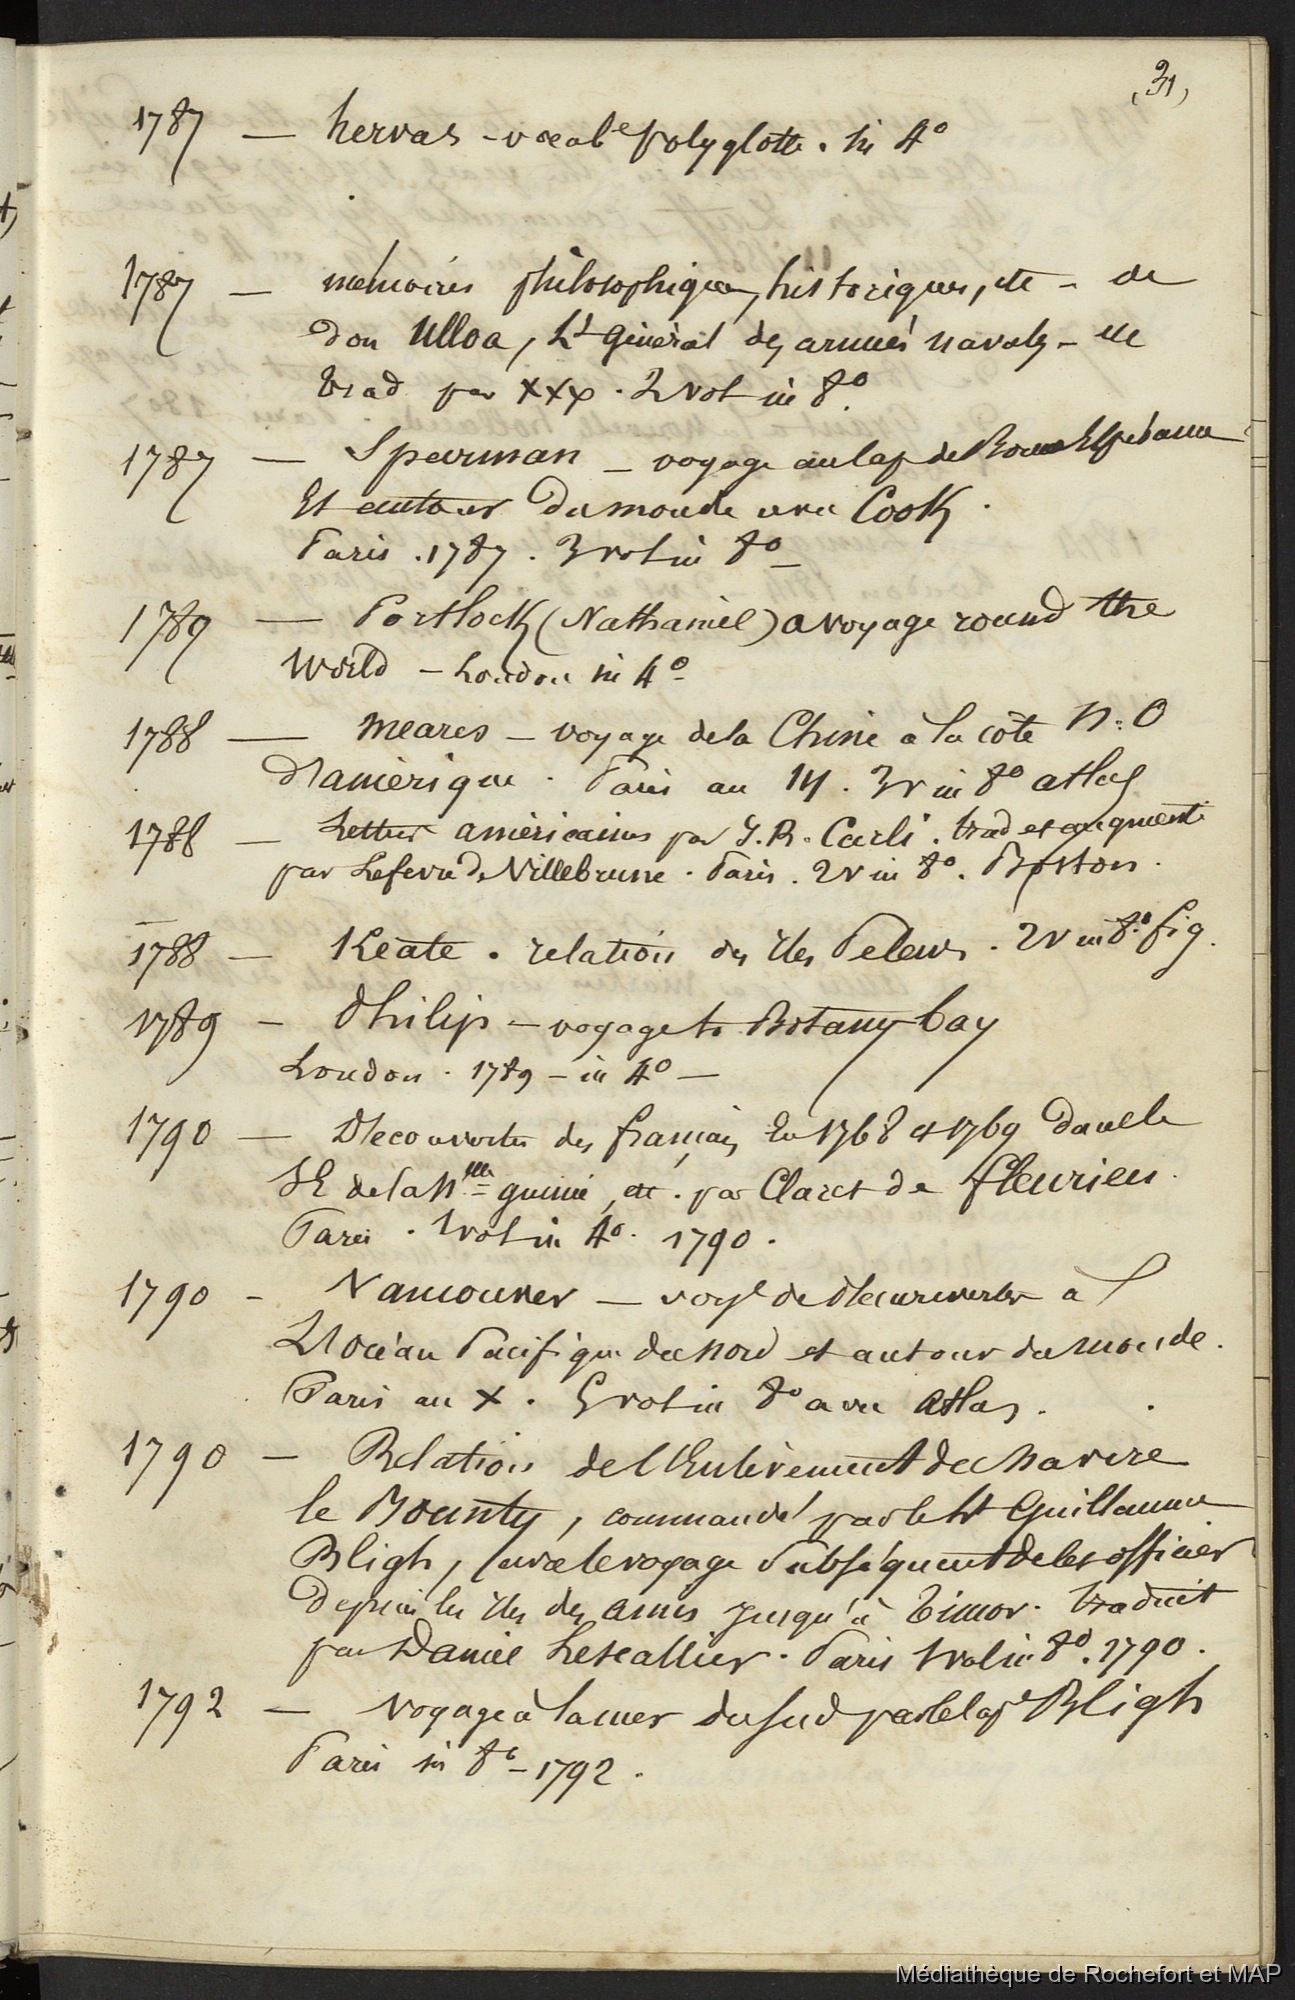 (31)
1787 — hervas - vocab.e polyglotte. in 4°
1787 — mémoires philosophiques, historiques, etc - de
don Ulloa, Lt Général des armées navales - etc
trad par xxx . 2 vol in 8°.
1787 — Sparman — voyage au Cap de Bonne Espérance
Et autour du monde avec Cook .
Paris . 1787 . 3 vol in 8° —
1789 — Portlock (Nathaniel) a voyage round the
World — London in 4°
1788 — Meares — voyage de la Chine à la côte N. O
D'amérique . Paris an III . 3 v in 8° atlas
1788 — Lettres américaines par J. R. Carli . trad et augmenté
par Lefevre de Villebrune . Paris . 2 v in 8°. Boston .
1788 — Keate . relation des îles Pelew . 2 v in 8° fig .
1789 — Philip — voyage to Botany bay
London . 1789 — in 4° —
1790 — Découvertes des français En 1768 et 1769 dans le
SE de la Nlle guinée, etc . par Claret de fleurieu .
Paris . 1 vol in 4° . 1790 .
1790 - Vancouver — voye de découvertes à
L'océan Pacifique du nord et autour du monde .
Paris an X . 5 vol in 8° avec atlas .
1790 — Relation de l'Enlèvement du navire
le Bounty, commandé par le Lt Guillaume
Bligh, avec le voyage Subséquent de cet officier
Depuis les îles des amis jusqu'à Timor . traduit
par Daniel Lescallier . Paris 1 vol in 8°. 1790 .
1792 — voyage à la mer du Sud par le cap Bligh
Paris in 8° — 1792 .
Médiathèque de Rochefort et MAP